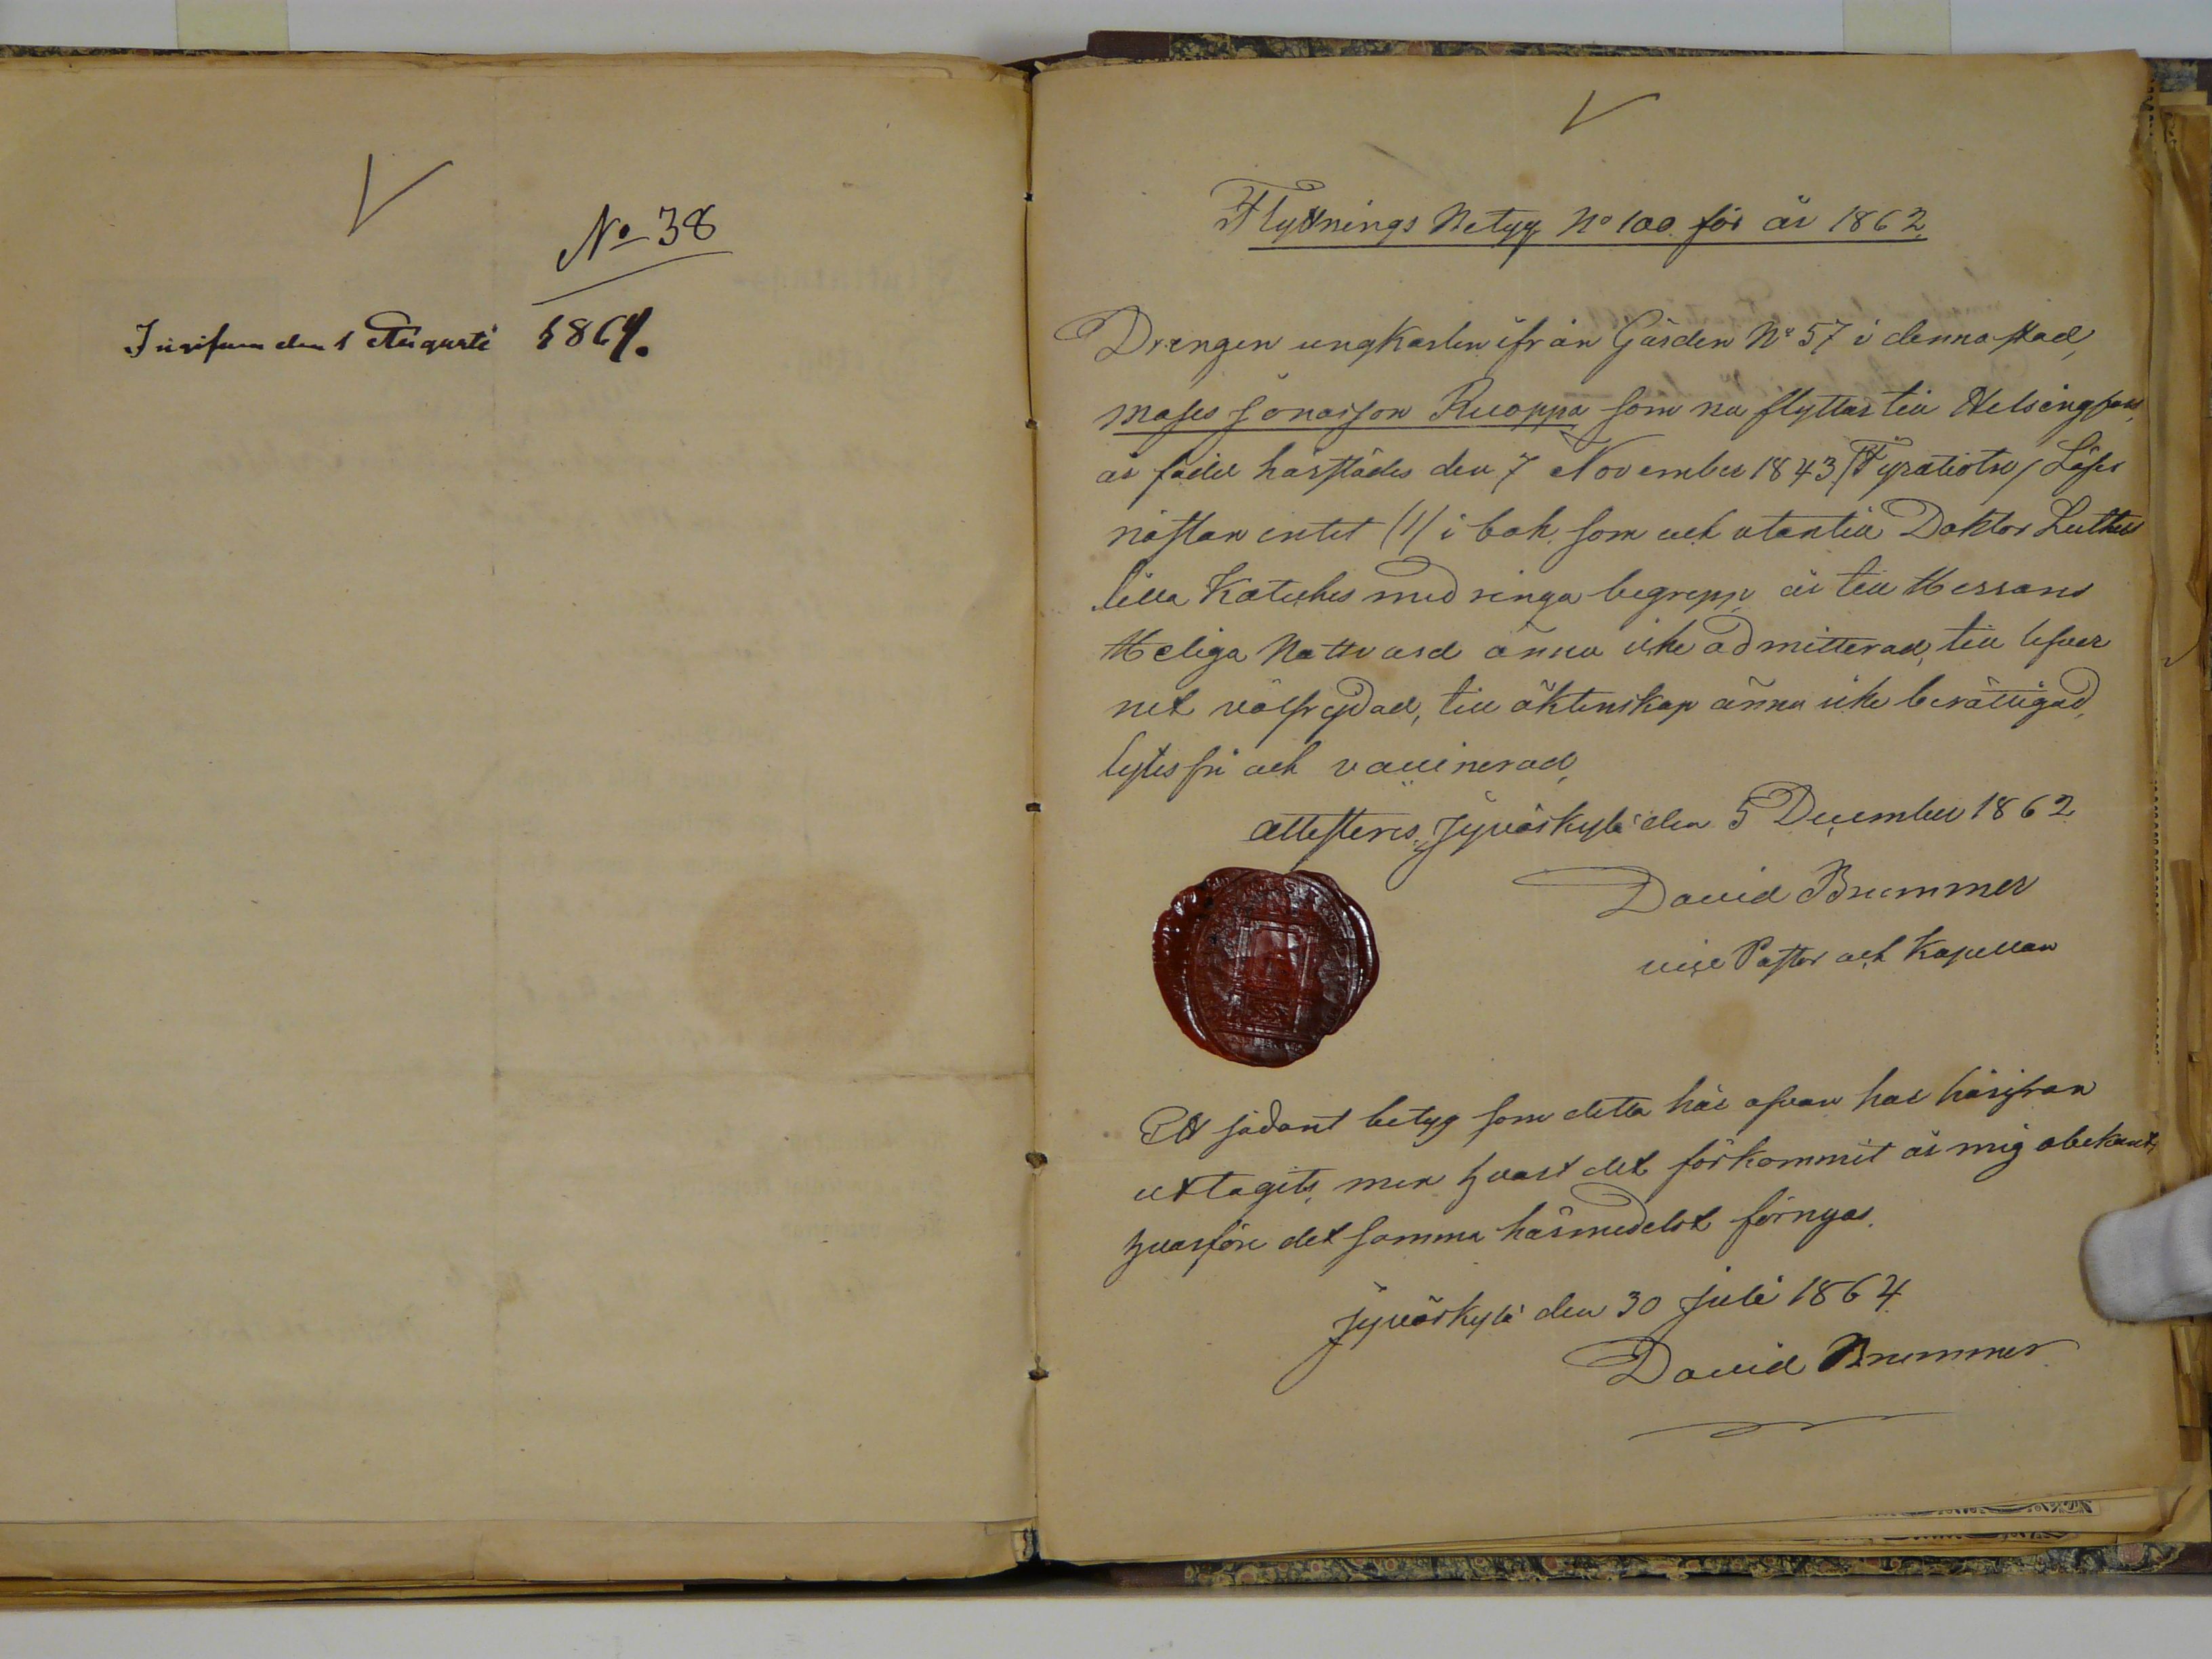 No 38
den 1 Augusti 1864.
Flyttnings Betyg No 100 för år 1862.
Drengen ungkarlen ifrån Gården No 57 i denna stad,
Moses Jönasson Ruoppa som nu flyttar till Helsingfors,
är född härstädes den 7 November 1843, läser
nästan intet (1) i bok som och utantill Doktor Luthers
lilla Kateches med ringa begrepp, är till Herrans
Heliga Nattvard ännu icke admitterad, till lefver
net välfrejdad, till äktenskap ännu icke berättigad,
lytesfri och vaccinerad,
attesteres, Jyväskylä den 5 December 1862.
David Brummer
vice Pastor och Kapellan
Ett sådant betyg som detta här ofvan har härifrån
uttagits, men hvart det förkommit är mig obekant,
hvarföre det samma härmedelst förnyas.
Jyväskylä den 30 Juli 1864.
David Brummer